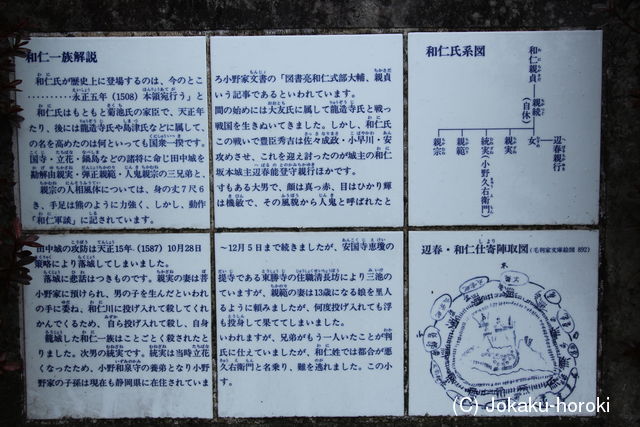 和仁一族解説
和仁氏が歴史上に登場するのは、今のところ小野家文書の「図書亮和仁式部大輔、親貞
………永正五年（1508）本領宛行う」という記事であるといわれています。
和仁氏はもともと菊池氏の家臣で、天正年間の始めには大友氏に属して龍造寺氏と戦っ
たり、後には龍造寺氏や島津氏などに属して、戦国を生きぬいてきました。しかし、和仁氏
の名を高めたのは何といっても国衆一揆です。この戦いで豊臣秀吉は佐々成政・小早川・安
国寺・立花・鍋島などの諸将に命じ田中城を攻めさせ、これを迎え討ったのが城主の和仁
勘解由親実・弾正親範・人鬼親宗の三兄弟と、坂本城主辺春能登守親行ほかです。
親宗の人相風体については、身の丈7尺6すもある大男で、顔は真っ赤、目はひかり輝
き、手足は熊のように力強く、しかし、動作は機敏で、その風貌から人鬼と呼ばれたと
「和仁軍談」に記されています。
和仁氏系図
和仁親貞
親続（自休）
女
辺春親行
親実
統実（小野久右衛門）
親範
親宗
田中城の攻防は天正15年（1587）10月28日～12月5日まで続きましたが、安国寺恵瓊の
策略により落城してしまいました。
落城に悲話はつきものです。親実の妻は菩提寺である東勝寺の住職清長坊により三池の
小野家に預けられ、男の子を生んだといわれていますが、親範の妻は13歳になる娘を里人
の手に委ね、和仁川に投げ入れて殺してくれるように頼みましたが、何度投げ入れても浮
かんでくるため、自ら投げ入れて殺し、自身も投身して果ててしまいました。
籠城した和仁一族はことごとく殺されたといわれますが、兄弟がもう一人いたことが判
りました。次男の統実です。統実は当時立花氏に仕えていましたが、和仁姓では都合が悪
くなったため、小野和泉守の養弟となり小野久右衛門と名乗り、難を逃れました。この小
野家の子孫は現在も静岡県に在住されています。
辺春・和仁仕寄陣取図（毛利家文庫絵図 892）
(C) Jokaku-horoki